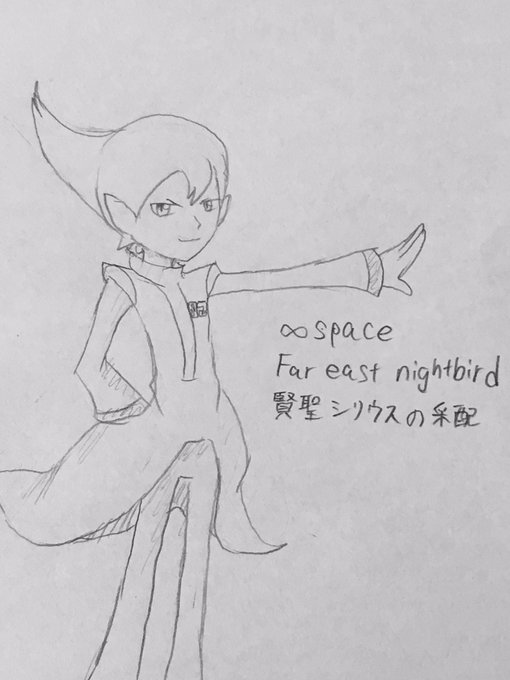 ∞space
Far east nightbird
賢聖シリウスの采配